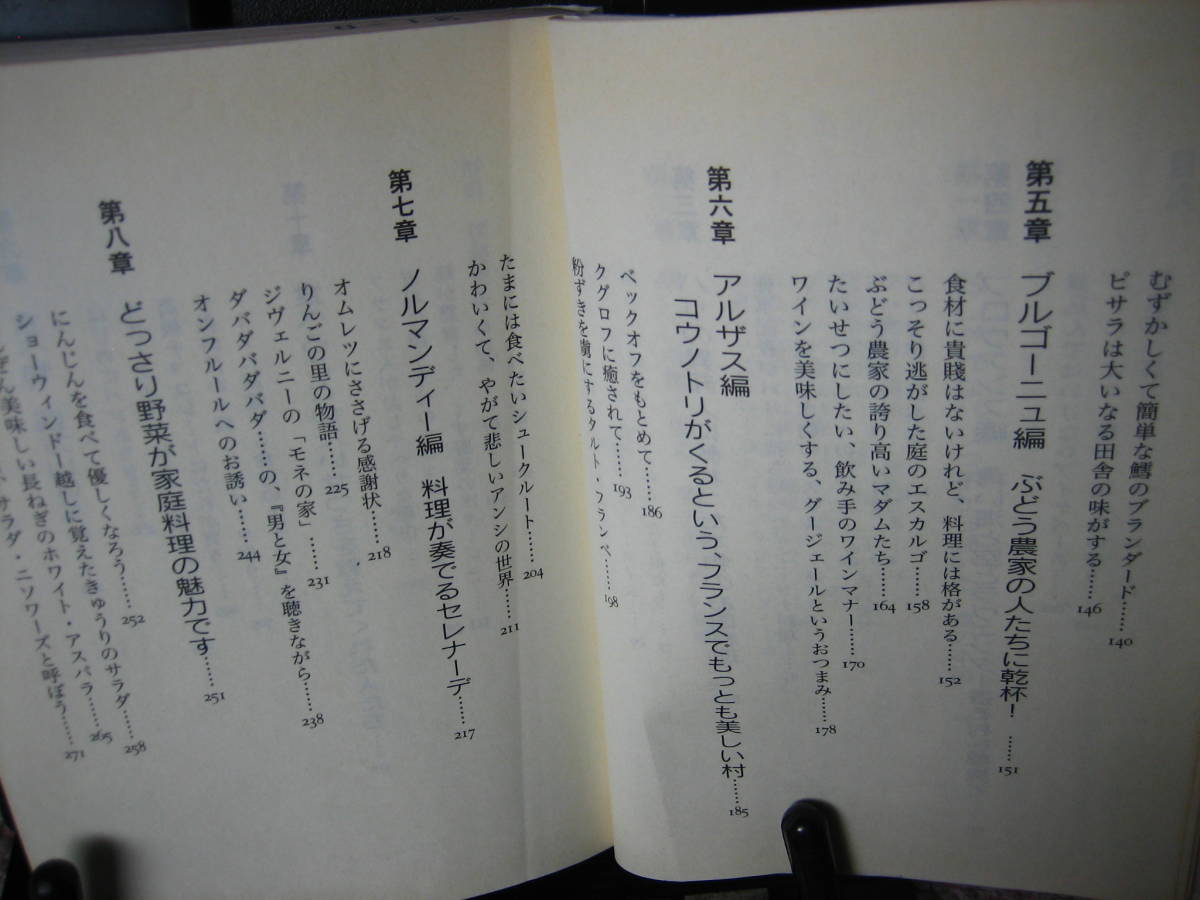 むずかしくて簡単な鱈のブランダード……140
ピサラは大いなる田舎の味がする……146
第五章 ブルゴーニュ編 ぶどう農家の人たちに乾杯! ……151
食材に貴賤はないけれど、料理には格がある……152
こっそり逃がした庭のエスカルゴ……158
ぶどう農家の誇り高いマダムたち……164
たいせつにしたい、飲み手のワインマナー……170
ワインを美味しくする、グージェールというおつまみ……178
第六章 アルザス編
コウノトリがくるという、フランスでもっとも美しい村……185
ベックオフをもとめて……186
クグロフに癒されて……193
粉ずきを虜にするタルト・フランベ……198
たまには食べたいシュークルート……204
かわいくて、やがて悲しいアンシの世界……211
第七章 ノルマンディー編 料理が奏でるセレナーデ……217
オムレツにささげる感謝状……218
りんごの里の物語……225
ジヴェルニーの「モネの家」……231
ダバダバダバダ……の、『男と女』を聴きながら……238
オンフルールへのお誘い……244
第八章 どっさり野菜が家庭料理の魅力です……251
にんじんを食べて優しくなろう……252
ショーウィンドー越しに覚えたきゅうりのサラダ……258
ぜん美味しい長ねぎのホワイト・アスパラ……265
サラダ・ニソワーズと呼ぼう……271